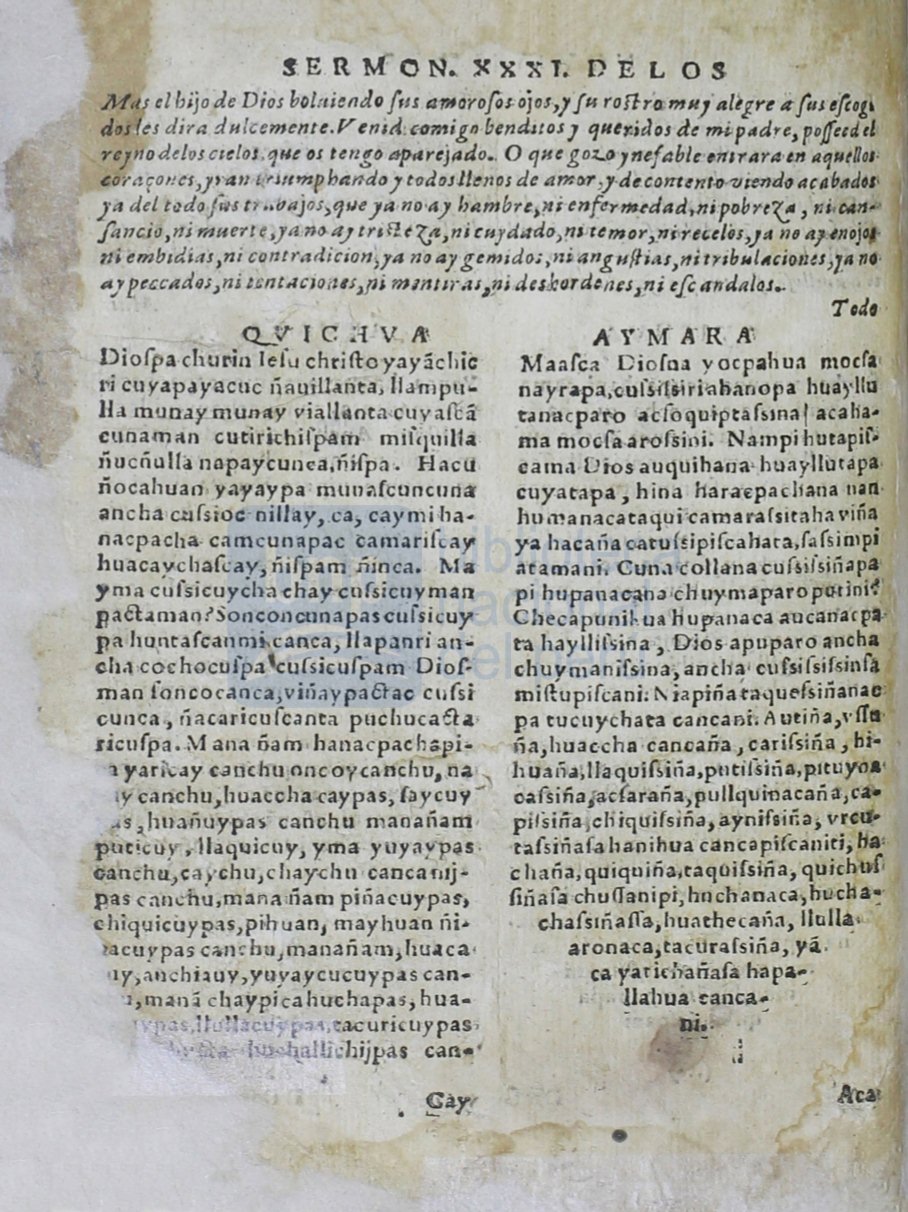 SERMON. XXXI. DE LOS
Mas el hijo de Dios boluiendo sus amorosos ojos, y su rostro muy alegre a sus escogi
dos les dira dulcemente. Venid comigo benditos y queridos de mi padre, posseed el
reyno de los cielos, que os tengo aparejado. O que gozo ynefable entrara en aquellos
coraçones, yran triumphando y todos llenos de amor, y de contento viendo acabados
ya del todo sus trabajos, que ya no ay hambre, ni enfermedad, ni pobreza, ni can-
sancio, ni muerte, ya no ay tristeza, ni cuydado, ni temor, ni recelos, ya no ay enojos
ni embidias, ni contradicion, ya no ay gemidos, ni angustias, ni tribulaciones, ya no
ay peccados, ni tentaciones, ni mentiras, ni deshordenes, ni escandalos.
Todo
QVICHVA
Diospa churin Iesu christo yayãchic
ri cuyapayacuc ñauillanta, llampu-
lla munay munay viallanta cuyascã
cunaman cutirichispam misquilla
ñucñulla napaycunca, ñispa. Hacu
ñocahuan yayaypa munascuncuna
ancha cussioc nillay, ca, caymi ha-
nacpacha camcunapac camariscay
huacaychascay, ñispam ñinca. Ma
yma cussicuycha chay cussicuyman
pactaman? Sonconcunapas cussicuy
pa huntascanmi canca, llapanri an-
cha cochocuspa cussicuspam Dios-
man soncocanca, viñaypactac cussi
cunca, ñacaricuscanta puchucacta
ricuspa. Mana ñam hanacpachapi-
yaricay canchu oncoycanchu, na
canchu, huaccha caypas, saycuy
huañuypas canchu manañam
puticuy, llaquicuy, yma yuyaypas
canchu, caychu, chaychu cancanij-
pas canchu, mana ñam piñacuypas,
chiquicuypas, pihuan, mayhuan ñi-
nacuypas canchu, manañam, huaca
uy, anchiauy, yuyaycucuypas can-
manã chaypica huchapas, hua-
llullacuypas, tacuricuypas
huchallichijpas can-
Cay
AYMARA
Maasca Diosna yocpahua mocsa
nayrapa, cussisiriahanopa huayllu
tanacparo acsoquiptassina acaha-
ma mocsa arossini. Nampi hutapis-
cama Dios auquihana huayllutapa
cuyatapa, hina haracpachana nan
humanacataqui camarassitaha viña
ya hacaña catussipiscahata, sassimpi
atamani. Cuna collana cussisiñapa
pi hupanacana chuymaparo putini?
Checapunihua hupanaca aucanacpa
ta hayllissina, Dios apuparo ancha
chuymanissina, ancha cussisissinsa
mistupiscani. Niapiña taquessiñanac
pa tucuychata cancani. Autiña, vssu
ña, huaccha cancaña, carissiña, hi-
huaña, llaquissiña, putissiña, pituyna
cassiña, acsaraña, pullquinacaña, ca-
pissiña, chiquissiña, aynissiña, vrcu-
tassiñasa hanihua cancapiscaniti, ha
chaña, quiquiña, taquissiña, quichus
siñasa chussanipi, huchanaca, hucha-
chassiñassa, huathecaña, llulla
aronaca, tacurassiña, yã
ca yatichañasa hapa-
llahua canca-
ni.
Aca